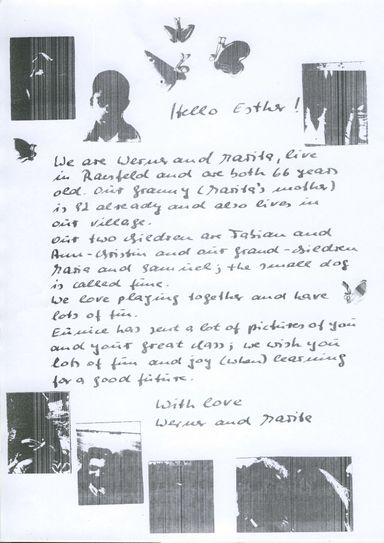 Hello Esther!
We are Werner and Marita, live
in Raesfeld and are both 66 years
old. Our granny (Marita's mother)
is 92 already and also lives in
our village.
Our two children are Fabian and
Ann-Christin and our grand-children
Maria and Samuel; the small dog
is called
We love playing together and have
lots of fun.
Eunice has sent a lot of pictures of you
and your great class; we wish you
lots of fun and joy (when) learning
for a good future.
With love
Werner and Marita